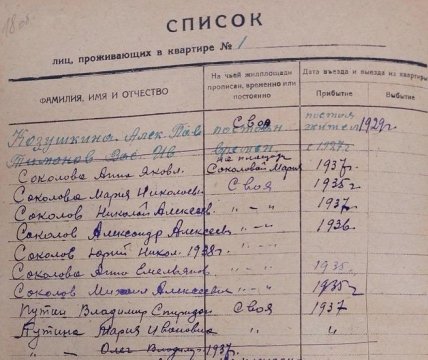 18 об.
СПИСОК
лиц, проживающих в квартире № 1
ФАМИЛИЯ, ИМЯ И ОТЧЕСТВО
На чьей жилплощади прописан, временно или постоянно
Дата въезда и выезда из квартиры
Прибытие
Выбытие
Козушкина Алек. Пав. Своя постоян постоян жител 1929г.
Тимонов Вас. Ив. времен. с 1937г
Соколова Анна Яковл. на площад Соколовой Марии 1937г.
Соколова Мария Николаевн Своя 1935г
Соколов Николай Алексеев " - " 1937г.
Соколов Александр Алексеев " - " 1936
Соколов Юрий Никол. 1938г. " - "
Соколова Анна Емельянов " - " 1935г.
Соколов Михаил Алексеевич " - " 1935г
Путин Владимир Спиридон Своя 1937
Путина Мария Ивановна " - " "
" Олег Владимир 1937г.